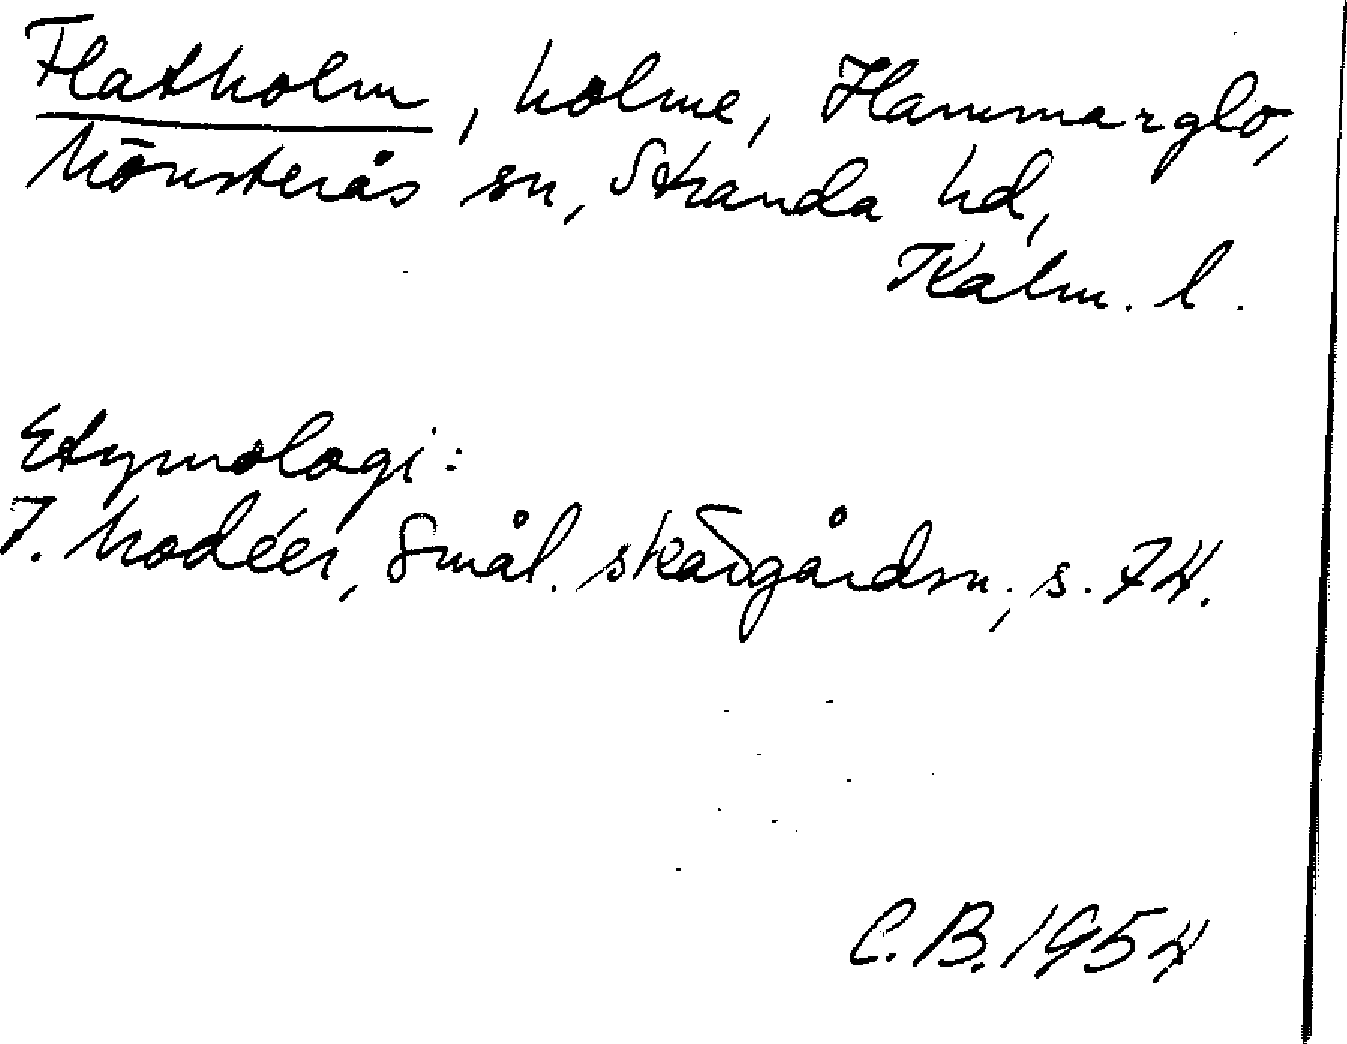 Flatholm, holme, Hammarglo,
Mönsterås sn, Stranda hd,
Kalm. l.
Etymologi:
I. Modéer, Smål. skärgårdsn., s. 74.
C.B. 1954